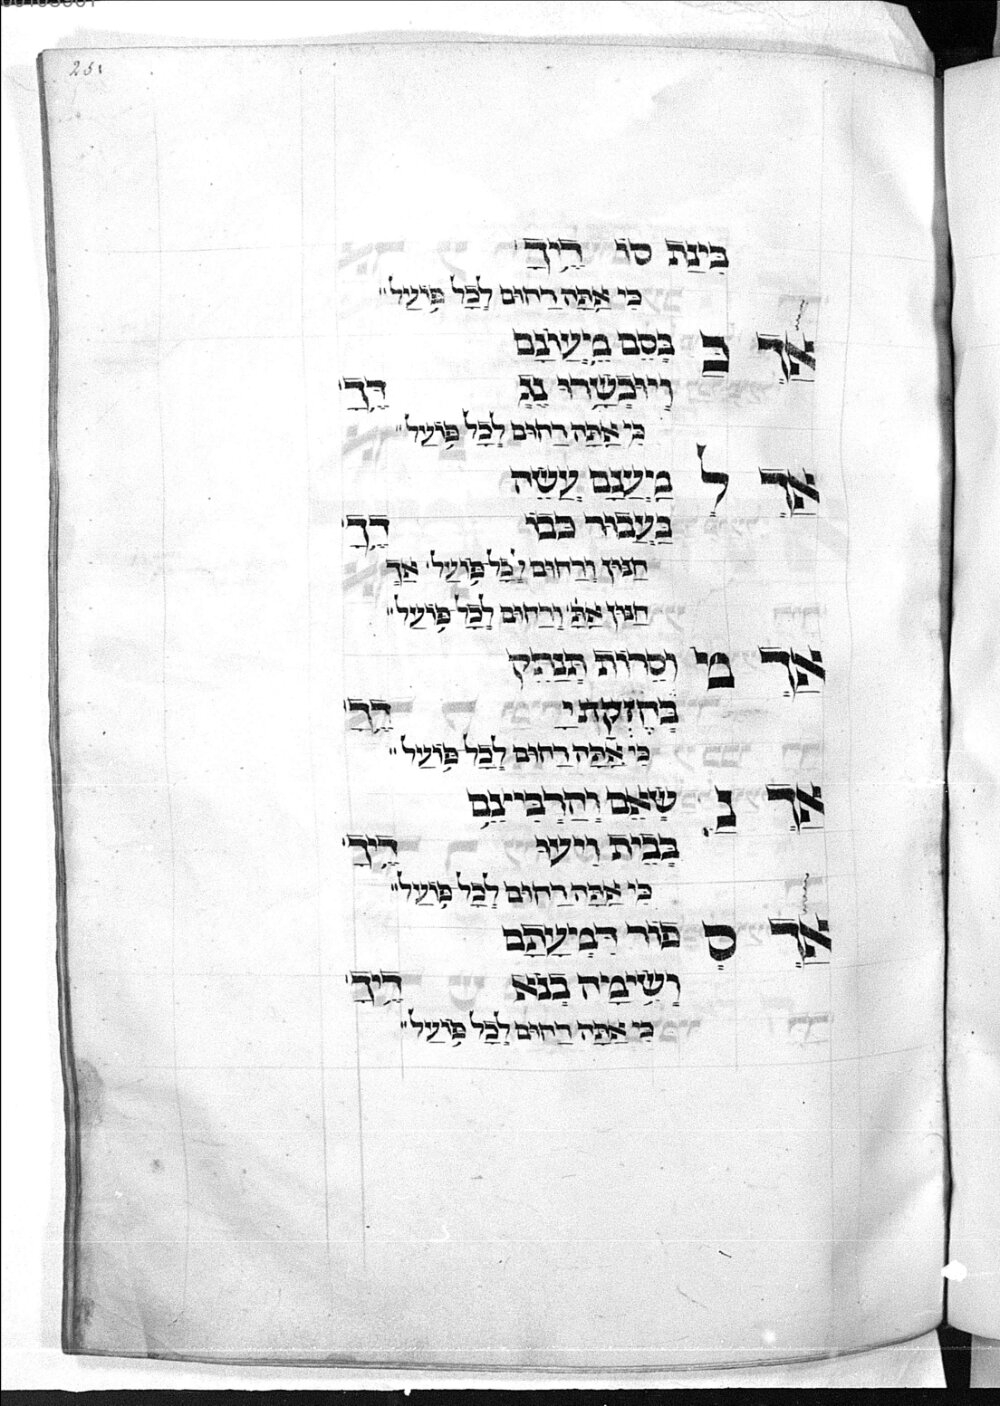 בִּינַת סוֹ דַ֥יִךָ
כִּי אַתָּה רַחוּם לְכָל פּוֹעַל
אַךְ בַּ בָּסַם מֵעוֹנָם
וְיוּכְשָׁרוּ נֶגֶ דֶּךָ
כִּי אַתָּה רַחוּם לְכָל פּוֹעַל
אַךְ לְ מַעֲנָם עֲשֵׂה
בַּעֲבוּר כְּבוֹ דֶךָ
חַנּוּן וְרַחוּם לְכָל פּוֹעַל אַךְ
חַנּוּן אַתָּ וְרַחוּם לְכָל פּוֹעַל
אַךְ מ וְסֵרוֹת תְּנַתֵּק
בְּחֶזְקָתִי דֶךָ
כִּי אַתָּה רַחוּם לְכָל פּוֹעַל
אַךְ נַ שְּׂאֵם וְהַרְבִּיצֵם
בְּבֵית וִיעוּ דֶיךָ
כִּי אַתָּה רַחוּם לְכָל פּוֹעַל
אַךְ סְ פוֹר דִּמְעָתָם
וְשִׂימָיהּ בְּנֹא דֶיךָ
כִּי אַתָּה רַחוּם לְכָל פּוֹעַל